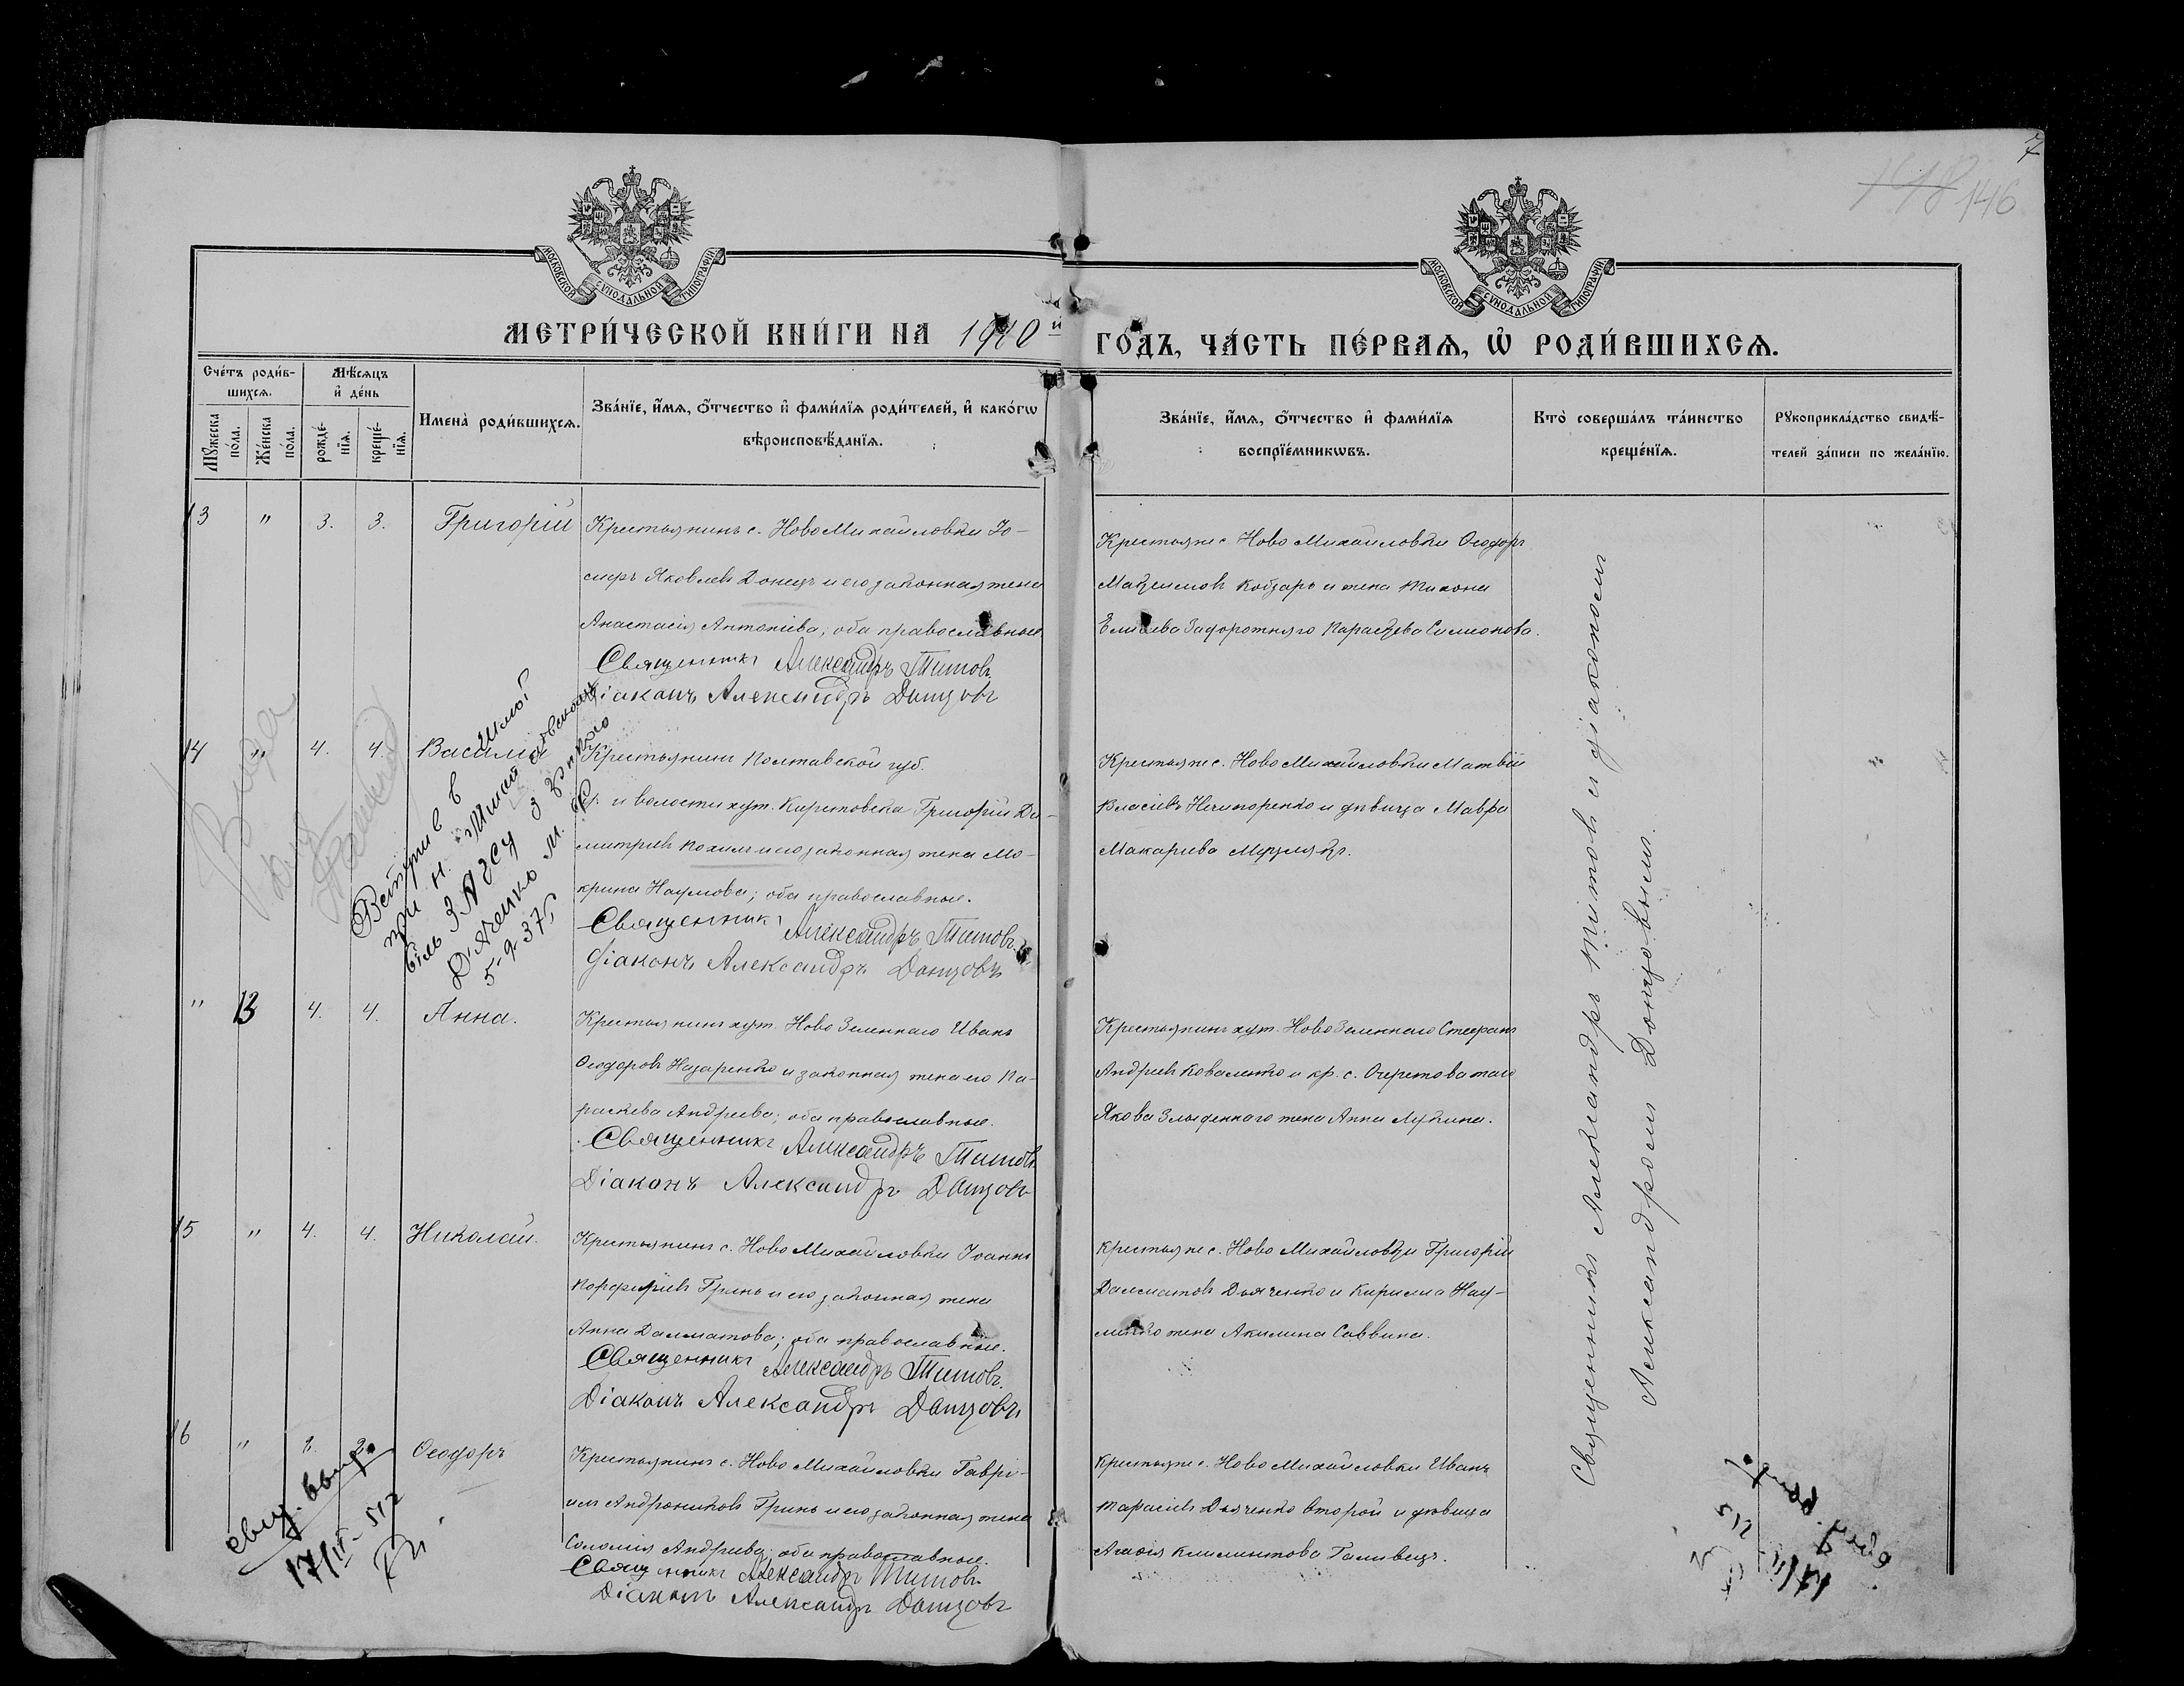 7
198 146
МОСКОВСКОЙ СѴНОДАЛЬНОЙ ТИПОГРАФІИ
МОСКОВСКОЙ СѴНОДАЛЬНОЙ ТИПОГРАФІИ
МЕТРИ́ЧЕСКОЙ КНИ́ГИ НА 1910 й ГО́ДЪ, ЧА́СТЬ ПЕ́РВАѦ, Ѽ РОДИ́ВШИХСѦ.
Сче́тъ роди́в-
шихсѧ.
Мѣ́сѧцъ
и҆ де́нь
Мꙋ́жеска
по́ла.
Же́нска
по́ла.
рожде́-
нїѧ.
креще́-
нїѧ.
Имена̀ роди́вшихсѧ.
Зва́нїе, и҆́мѧ, ѻ҆́тчество и҆ фами́лїѧ роди́телей, и҆ како́гѡ
вѣроисповѣ́данїѧ.
Зва́нїе, и҆́мѧ, ѻ҆́тчество и҆ фами́лїѧ
воспрїе́мникѡвъ.
Кто̀ соверша́лъ та́инство
креще́нїѧ.
Рꙋкоприкла́дство свидѣ́-
телей за́писи по жела́нїю.
13 " 3. 3. Григорій
Крестьянинъ с. Ново Михайловки Іо-
сифъ Яковлевъ Донецъ и его законная жена
Анастасія Антоніева; оба православные
Священникъ Александръ Титовъ
Діаконъ Александръ Донцовъ
Крестьяне с. Ново Михайловки Ѳеодоръ
Максимовъ Кобзарь и жена Тихона
Елисѣева Задорожняго Параскева Симеонова.
14 " 4. 4. Василій
Крестьянинъ Полтавской губ.
и волости хут. Киретовска Григорій Ди-
митріевъ Похилъ и его законная жена Мо-
крина Наумова; оба православные.
Священникъ Александръ Титовъ
Діаконъ Александръ Донцовъ
Крестьяне с. Ново Михайловки Матвій
Власіевъ Нечипоренко и дѣвица Мавра
Макариева
Вступив в
при Н.
біль ЗАГСу з
Дяченко М.
5-9-37
" 13 4. 4. Анна.
Крестьянинъ хут. Ново Зеленаго Иванъ
Ѳеодоровъ Назаренко и законная жена его Па-
раскева Андреева; оба православные.
Священникъ Александръ Титовъ
Діаконъ Александръ Донцовъ
Крестьянинъ хут. Ново Зеленаго Стефанъ
Андреевъ Коваленко и кр. с. Очеретоватаго
Якова Злыденнаго жена Анна Лукина.
15 " 4. 4. Николай.
Крестьянинъ с. Ново Михайловки Іоаннъ
Порфиріевъ Гринь и его законная жена
Анна Далматова; оба православные.
Священникъ Александръ Титовъ.
Діаконъ Александръ Донцовъ
Крестьяне с. Ново Михайловки Григорій
Далматовъ Дьяченко и Кирилла Нау-
менко жена Акилина Саввина.
16 " Ѳеодоръ
Крестьянинъ с. Ново Михайловки Гаврі-
илъ Андрониковъ Гринь и его законная жена
Соломія Андреева; оба православные.
Священникъ Александръ Титовъ
Діаконъ Александръ Донцовъ
Крестьяне с. Ново Михайловки Иванъ
Тарасіевъ Дьяченко второй и дѣвица
Агаѳія Климентова Галивецъ.
Священникъ Александръ Титовъ и діакономъ
Александромъ Донцовымъ.
свид. выд.